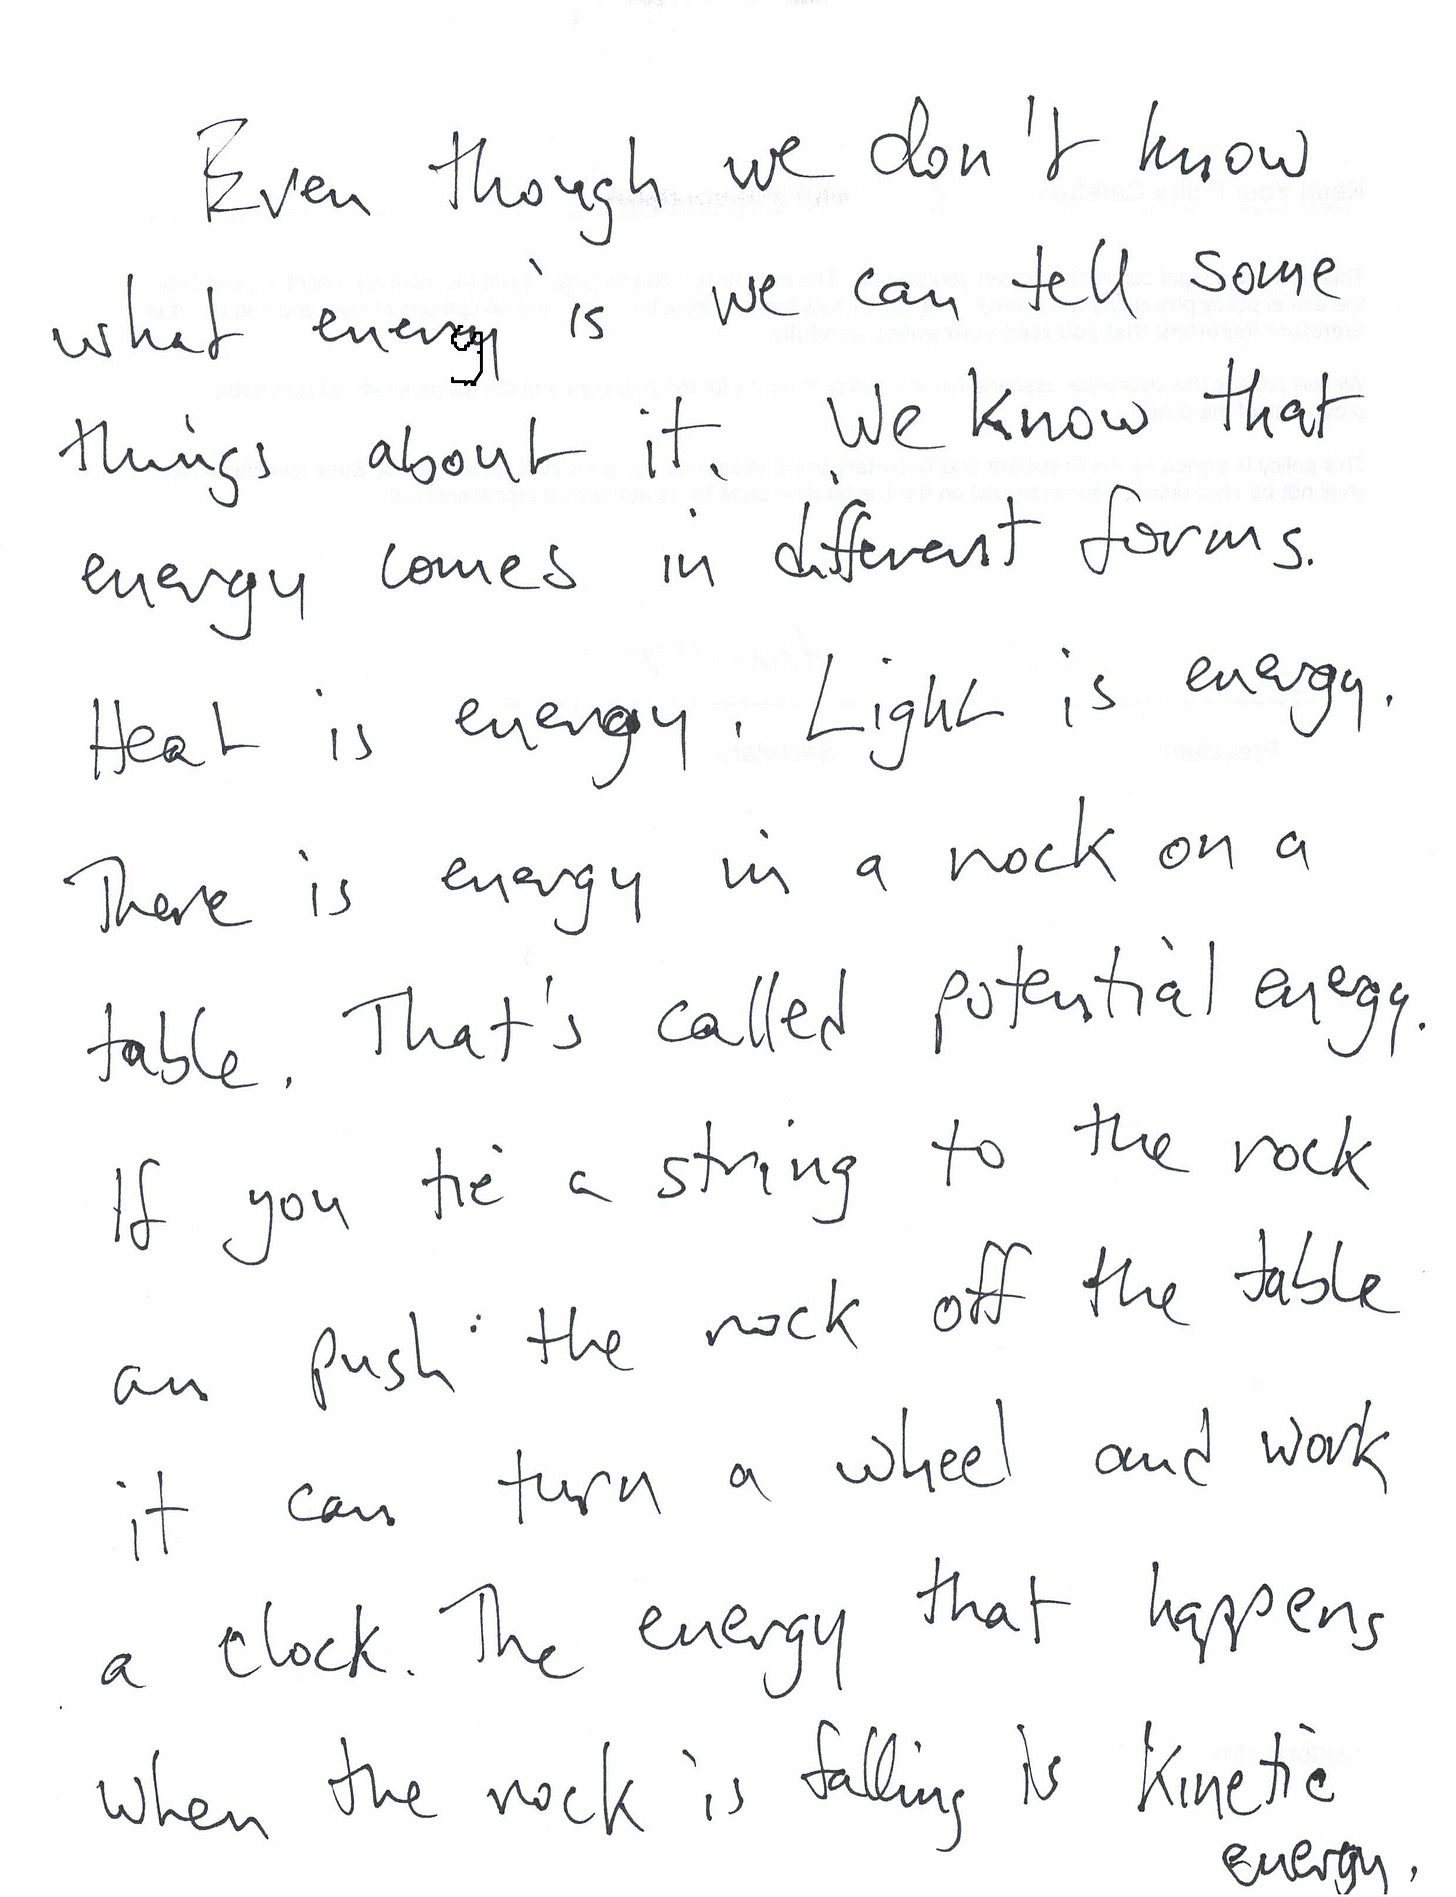 Even though we don't know
what energy is we can tell some
things about it. We know that
energy comes in different forms.
Heat is energy. Light is energy.
There is energy in a rock on a
table. That's called potential enegy.
If you tie a string to the rock
an push the rock off the table
it can turn a wheel and work
a clock. The energy that happens
when the rock is falling is kinetic
energy.